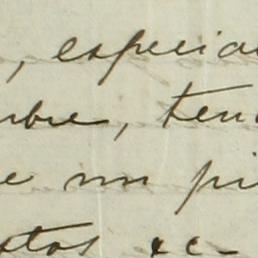 , especia
mbre, ten
e un pi
stos ec-